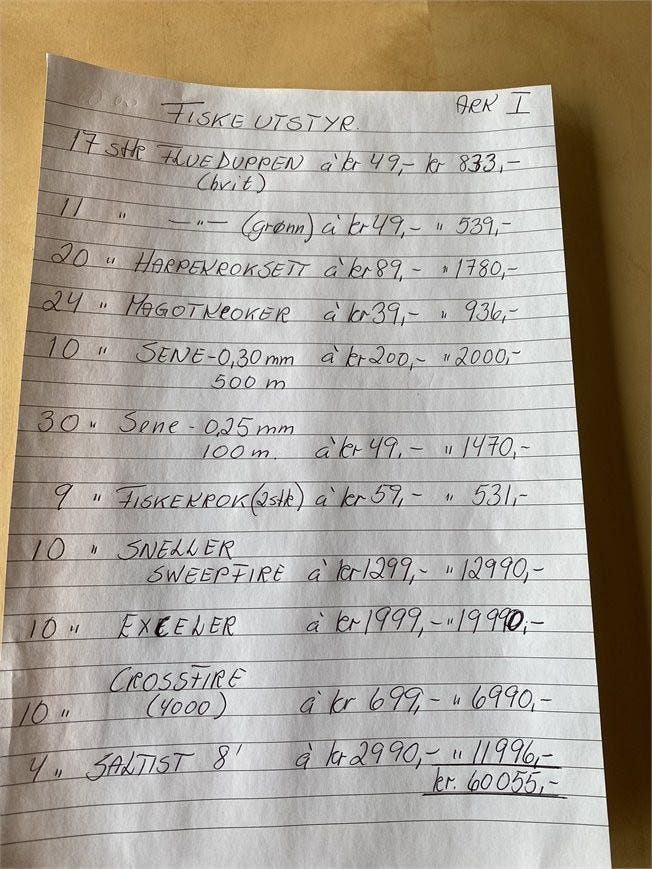 FISKEUTSTYR. ARK I
17 stk FLUEDUPPEN à kr 49,- kr 833,-
(hvit)
11 " —"— (grønn) à kr 49,- " 539,-
20 " HARPEKROKSETT à kr 89,- " 1780,-
24 " MAGOTKROKER à kr 39,- " 936,-
10 " SENE - 0,30 mm à kr 200,- " 2000,-
500 m
30 " Sene - 0,25 mm
100 m. à kr 49,- " 1470,-
9 " FISKEKROK (2stk) à kr 59,- " 531,-
10 " SNELLER
SWEEPFIRE à kr 1299,- " 12990,-
10 " EXCELER à kr 1999,- " 19990,-
CROSSFIRE
10 " (4000) à kr 699,- " 6990,-
4 " SALTIST 8' à kr 2990,- " 11996,-
kr. 60055,-